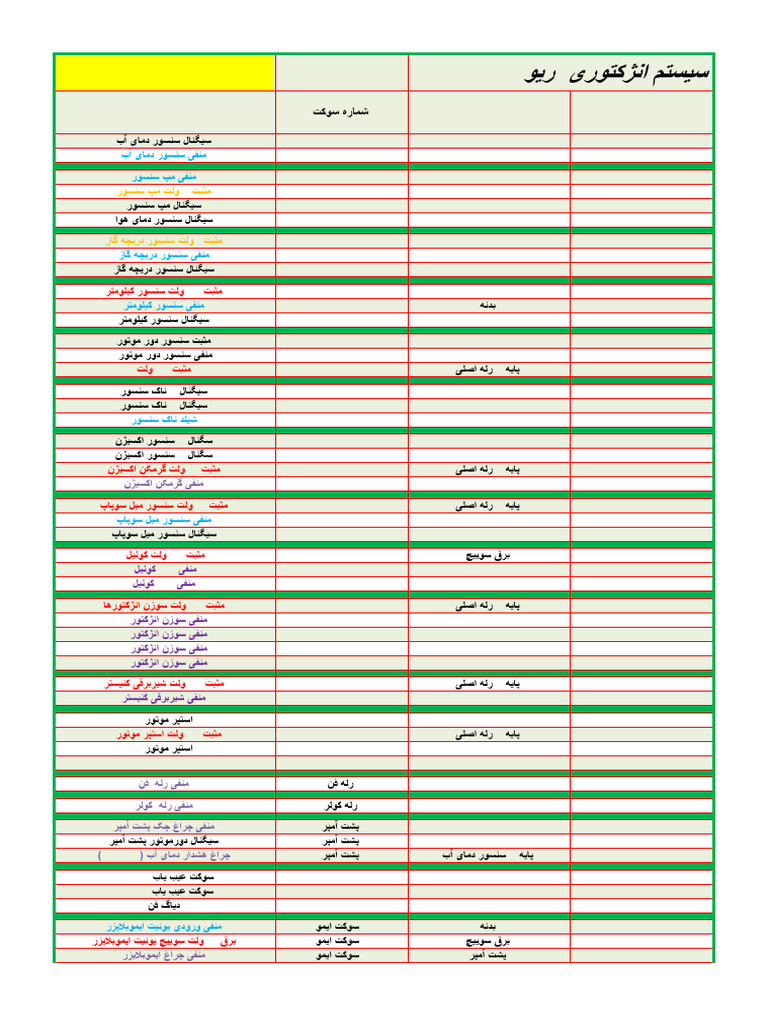 سیستم انژکتوری ریو
شماره سوکت
سیگنال سنسور دمای آب
منفی سنسور دمای آب
منفی مپ سنسور
مثبت ولت مپ سنسور
سیگنال مپ سنسور
سیگنال سنسور دمای هوا
مثبت ولت سنسور دریچه گاز
منفی سنسور دریچه گاز
سیگنال سنسور دریچه گاز
مثبت ولت سنسور کیلومتر
بدنه منفی سنسور کیلومتر
سیگنال سنسور کیلومتر
مثبت سنسور دور موتور
منفی سنسور دور موتور
پایه رله اصلی مثبت ولت
سیگنال ناک سنسور
سیگنال ناک سنسور
شیلد ناک سنسور
سگنال سنسور اکسیژن
سگنال سنسور اکسیژن
پایه رله اصلی مثبت ولت گرمکن اکسیژن
منفی گرمکن اکسیژن
پایه رله اصلی مثبت ولت سنسور میل سوپاپ
منفی سنسور میل سوپاپ
سیگنال سنسور میل سوپاپ
برق سوییچ مثبت ولت کوئیل
منفی کوئیل
منفی کوئیل
پایه رله اصلی مثبت ولت سوزن انژکتورها
منفی سوزن انژکتور
منفی سوزن انژکتور
منفی سوزن انژکتور
منفی سوزن انژکتور
پایه رله اصلی مثبت ولت شیربرقی کنیستر
منفی شیربرقی کنیستر
استپر موتور
پایه رله اصلی مثبت ولت استپر موتور
استپر موتور
رله فن منفی رله فن
رله کولر منفی رله کولر
پشت آمپر منفی چراغ چک پشت آمپر
پشت آمپر سیگنال دورموتور پشت آمپر
پایه سنسور دمای آب پشت آمپر چراغ هشدار دمای آب ( )
سوکت عیب یاب
سوکت عیب یاب
دیاگ فن
بدنه سوکت ایمو منفی ورودی یونیت ایموبلایزر
برق سوییچ سوکت ایمو برق ولت سوییچ یونیت ایموبلایزر
پشت آمپر سوکت ایمو منفی چراغ ایموبلایزر